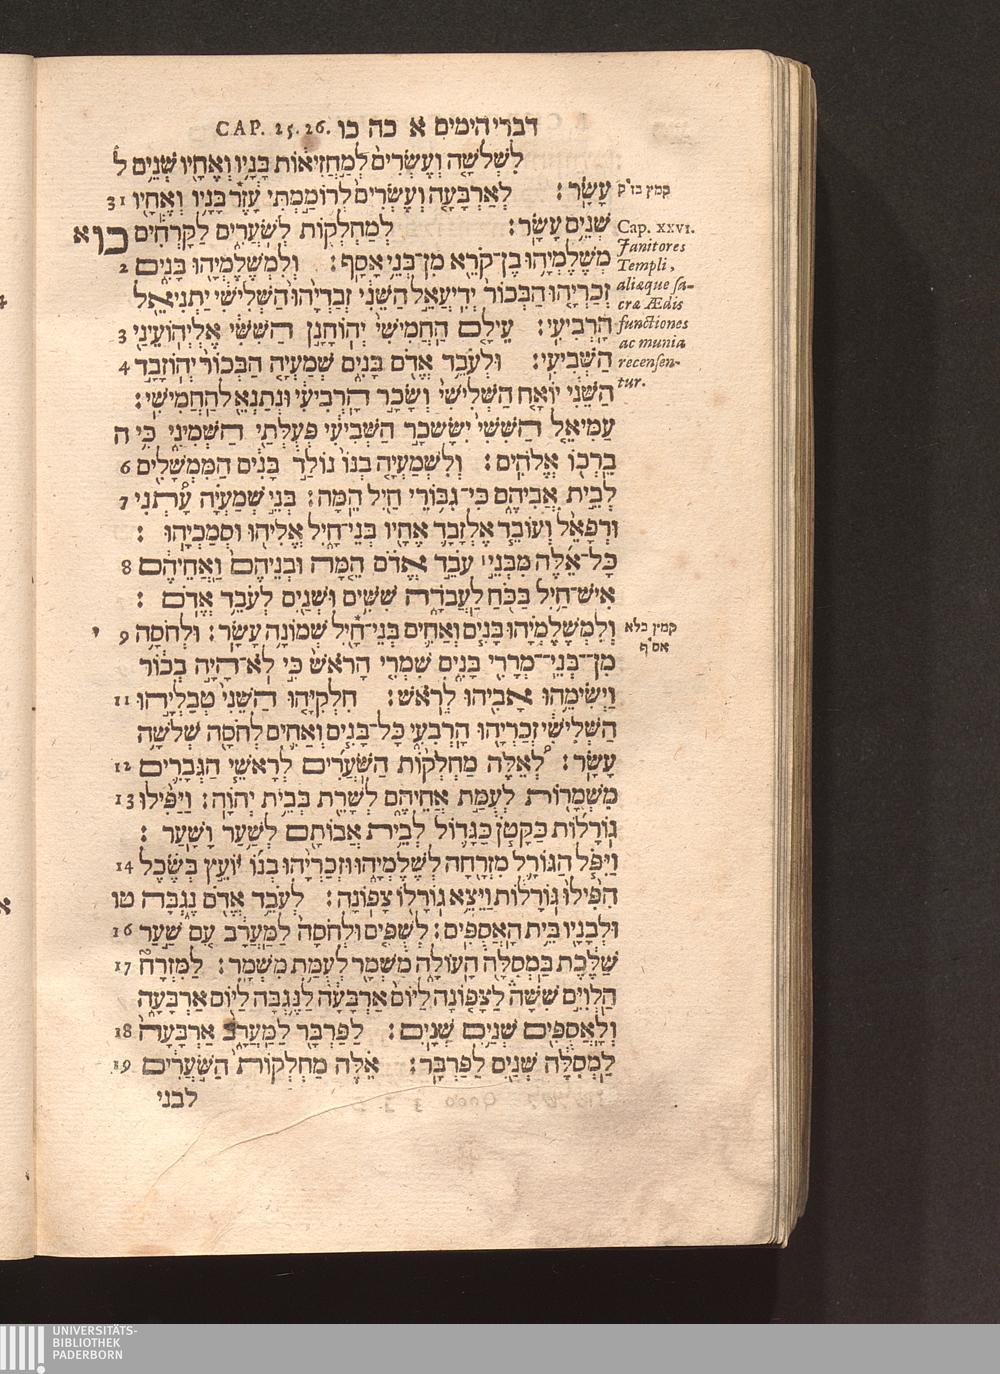 דברי הימים א כה כו CAP. 25. 26.
לִשְׁלֹשָׁה וְעֶשְׂרִים לְמַחֲזִיאוֹת בָּנָיו וְאֶחָיו שְׁנַיִם ל
עָשָׂר : לְאַרְבָּעָה וְעֶשְׂרִים לְרוֹמַמְתִּי עָזֶר בָּנָיו וְאֶחָיו 31
קמץ בז״ק
שְׁנַיִם עָשָׂר : לְמַחְלְקוֹת לְשֹׁעֲרִים לַקָּרְחִים כו א
מְשֶׁלֶמְיָהוּ בֶן־קֹרֵא מִן־בְּנֵי אָסָף : וְלִמְשֶׁלֶמְיָהוּ בָּנִים 2
זְכַרְיָהוּ הַבְּכוֹר יְדִיעֲאֵל הַשֵּׁנִי זְבַדְיָהוּ הַשְּׁלִישִׁי יַתְנִיאֵל
הָרְבִיעִי : עֵילָם הַחֲמִישִׁי יְהוֹחָנָן הַשִּׁשִּׁי אֶלְיְהוֹעֵינַי 3
הַשְּׁבִיעִי : וּלְעֹבֵד אֱדֹם בָּנִים שְׁמַעְיָה הַבְּכוֹר יְהוֹזָבָד 4
הַשֵּׁנִי יוֹאָח הַשְּׁלִישִׁי וְשָׂכָר הָרְבִיעִי וּנְתַנְאֵל הַחֲמִישִׁי :
עַמִּיאֵל הַשִּׁשִּׁי יִשָּׂשכָר הַשְּׁבִיעִי פְּעֻלְּתַי הַשְּׁמִינִי כִּי ה
בֵרְכוֹ אֱלֹהִים : וְלִשְׁמַעְיָה בְנוֹ נוֹלַד בָּנִים הַמִּמְשָׁלִים 6
לְבֵית אֲבִיהֶם כִּי־גִבּוֹרֵי חַיִל הֵמָּה : בְּנֵי שְׁמַעְיָה עָתְנִי 7
וּרְפָאֵל וְעוֹבֵד אֶלְזָבָד אֶחָיו בְּנֵי־חָיִל אֱלִיהוּ וּסְמַכְיָהוּ :
כָּל־אֵלֶּה מִבְּנֵי עֹבֵד אֱדֹם הֵמָּה וּבְנֵיהֶם וַאֲחֵיהֶם 8
אִישׁ־חַיִל בַּכֹּחַ לַעֲבֹדָה שִׁשִּׁים וּשְׁנַיִם לְעֹבֵד אֱדֹם :
וְלִמְשֶׁלֶמְיָהוּ בָּנִים וְאַחִים בְּנֵי־חָיִל שְׁמוֹנָה עָשָׂר : וּלְחֹסָה 9 י
קמץ בלא
אס״ף
מִן־בְּנֵי־מְרָרִי בָּנִים שִׁמְרִי הָרֹאשׁ כִּי לֹא־הָיָה בְכוֹר
וַיְשִׂימֵהוּ אָבִיהוּ לְרֹאשׁ : חִלְקִיָּהוּ הַשֵּׁנִי טְבַלְיָהוּ 11
הַשְּׁלִישִׁי זְכַרְיָהוּ הָרְבִעִי כָּל־בָּנִים וְאַחִים לְחֹסָה שְׁלֹשָׁה
עָשָׂר : לְאֵלֶּה מַחְלְקוֹת הַשֹּׁעֲרִים לְרָאשֵׁי הַגְּבָרִים 12
מִשְׁמָרוֹת לְעֻמַּת אֲחֵיהֶם לְשָׁרֵת בְּבֵית יְהוָה : וַיַּפִּילוּ 13
גוֹרָלוֹת כַּקָּטֹן כַּגָּדוֹל לְבֵית אֲבוֹתָם לְשַׁעַר וָשָׁעַר :
וַיִּפֹּל הַגּוֹרָל מִזְרָחָה לְשֶׁלֶמְיָהוּ וּזְכַרְיָהוּ בְנוֹ יוֹעֵץ בְּשֶׂכֶל 14
הִפִּילוּ גּוֹרָלוֹת וַיֵּצֵא גוֹרָלוֹ צָפוֹנָה : לְעֹבֵד אֱדֹם נֶגְבָּה טו
וּלְבָנָיו בֵּית הָאֲסֻפִּים : לְשֻׁפִּים וּלְחֹסָה לַמַּעֲרָב עִם שַׁעַר 16
שַׁלֶּכֶת בַּמְסִלָּה הָעוֹלָה מִשְׁמָר לְעֻמַּת מִשְׁמָר : לַמִּזְרָח 17
הַלְוִיִּם שִׁשָּׁה לַצָּפוֹנָה לַיּוֹם אַרְבָּעָה לַנֶּגְבָּה לַיּוֹם אַרְבָּעָה
וְלָאֲסֻפִּים שְׁנַיִם שְׁנָיִם : לַפַּרְבָּר לַמַּעֲרָב אַרְבָּעָה 18
לַמְסִלָּה שְׁנַיִם לַפַּרְבָּר : אֵלֶּה מַחְלְקוֹת הַשֹּׁעֲרִים 19
לבני
Cap. XXVI.
Janitores
Templi,
aliæque sa-
cræ Ædis
functiones
ac munia
recensen-
tur.
UNIVERSITÄTS-
BIBLIOTHEK
PADERBORN